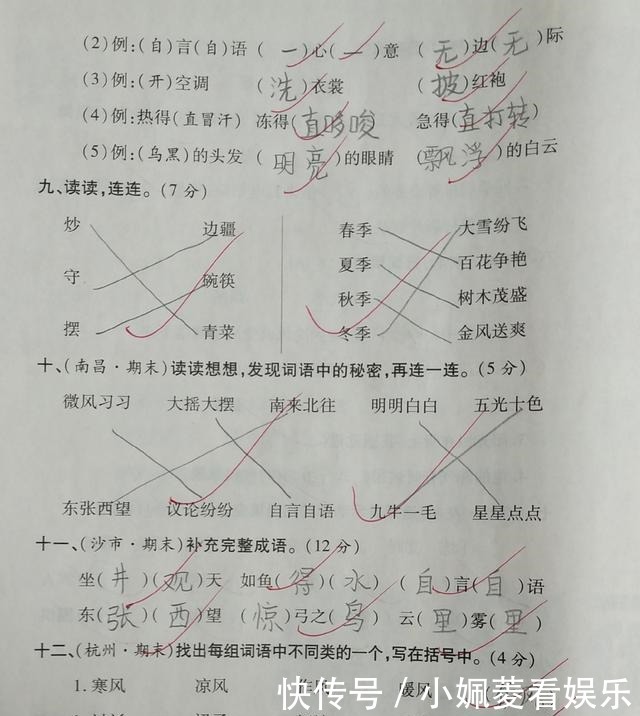 (2)例:(自)言(自)语 (一)心(一)意 (无)边(无)际
(3)例:(开)空调 (洗)衣裳 (披)红袍
(4)例:热得(直冒汗) 冻得(直哆唆) 急得(直打转)
(5)例:(乌黑)的头发 (明亮)的眼睛 (飘浮)的白云
九、读读,连连。(7分)
炒 边疆 春季 大雪纷飞
守 碗筷 夏季 百花争艳
摆 青菜 秋季 树木茂盛
冬季 金风送爽
十、(南昌·期末)读读想想,发现词语中的秘密,再连一连。(5分)
微风习习 大摇大摆 南来北往 明明白白 五光十色
东张西望 议论纷纷 自言自语 九牛一毛 星星点点
十一、(沙市·期末)补充完整成语。(12分)
坐(井)(观)天 如鱼(得)(水) (自)言(自)语
东(张)(西)望 (惊)弓之(鸟) 云(里)雾(里)
十二、(杭州·期末)找出每组词语中不同类的一个,写在括号中。(4分)
1.寒风 凉风 暖风
快传号/小姵菱看娱乐